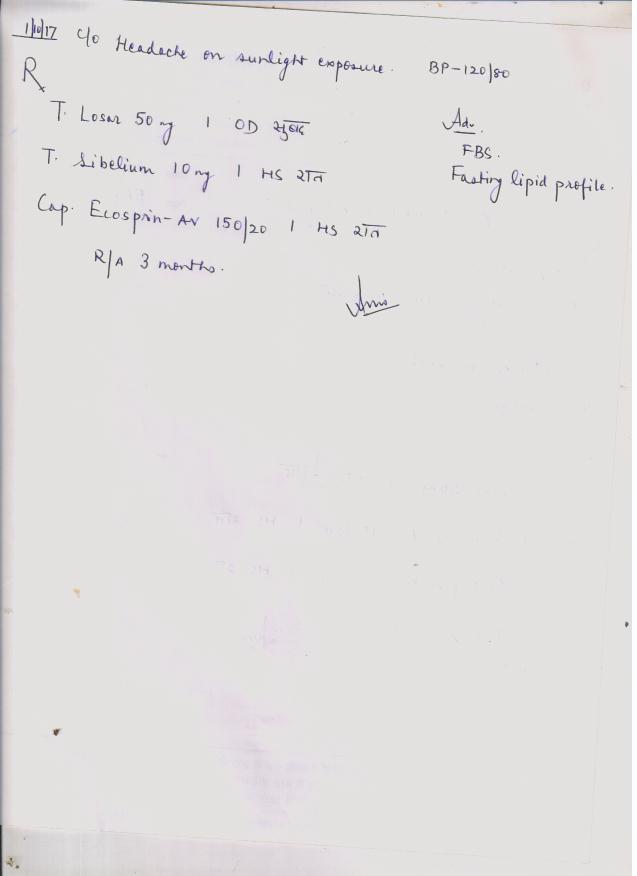 1/10/17 c/o Headache on sunlight exposure. BP-120/80
Rx
T. Losar 50mg 1 OD सुबह
T. Sibelium 10mg 1 HS रात
Cap. Ecosprin-AV 150/20 1 HS रात
R/A 3 months.
Adv.
FBS.
Fasting lipid profile.